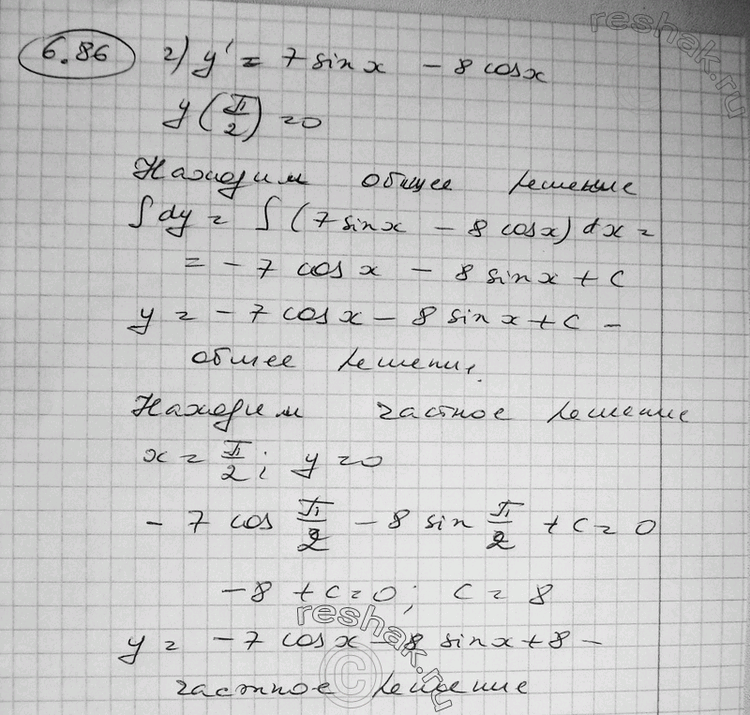 6.86 2) y' = 7 sin x - 8 cos x
y(π/2) = 0
Находим общее решение
∫dy = ∫(7 sin x - 8 cos x) dx =
= -7 cos x - 8 sin x + C
y = -7 cos x - 8 sin x + C -
общее решение.
Находим частное решение
x = π/2; y = 0
-7 cos π/2 - 8 sin π/2 + C = 0
-8 + C = 0; C = 8
y = -7 cos x - 8 sin x + 8 -
частное решение
reshak.ru
reshak.ru
©